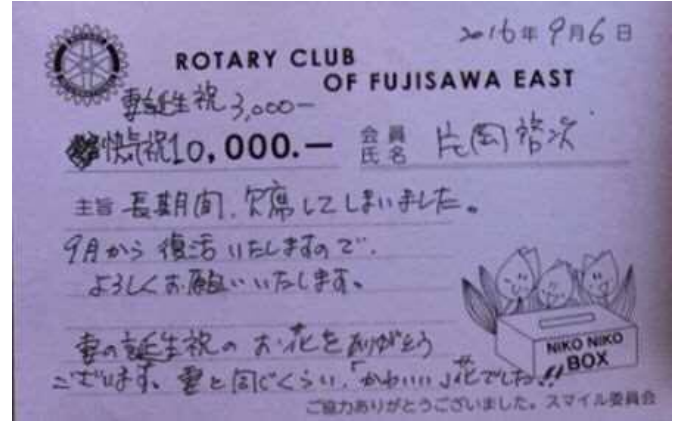 2016年9月6日
ROTARY CLUB
OF FUJISAWA EAST
妻誕生祝 3,000-
快気祝10,000.-
会員氏名 片岡裕次
主旨 長期間、欠席してしまいました。
9月から復活いたしますので、
よろしくお願いいたします。
妻の誕生祝のお花をありがとう
ございます。妻と同じくらい「かわいい」花でした!!
NIKO NIKO
BOX
ご協力ありがとうございました。スマイル委員会